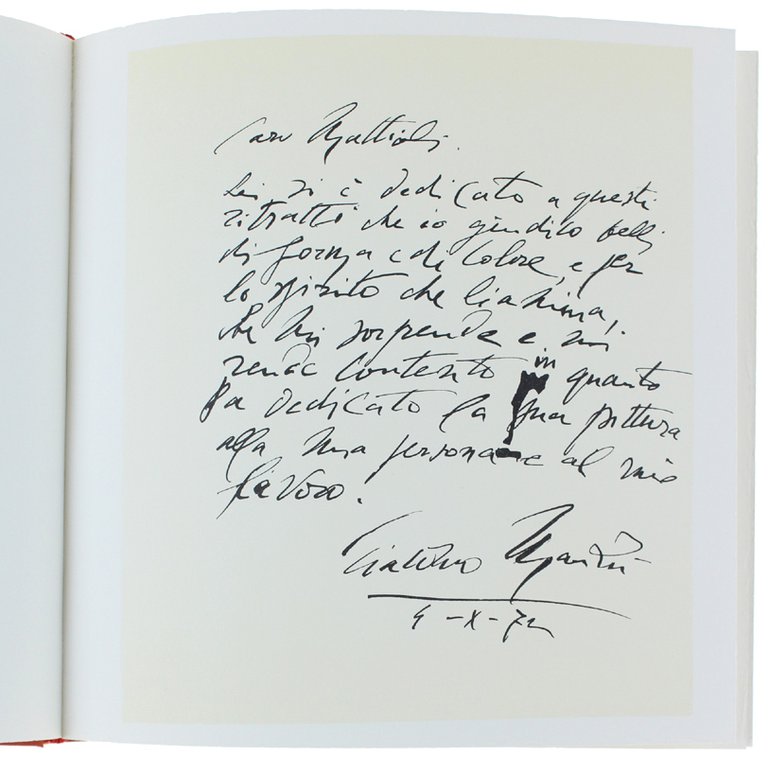 Caro Mattioli,
Lei si è dedicato a questi
ritratti che io giudico belli
di forma e di colore, e per
lo spirito che li anima,
che mi sorprende e mi
rende contento in quanto
ha dedicato la sua pittura
alla mia persona e al mio
lavoro.
Giacomo Manzù
4-X-72